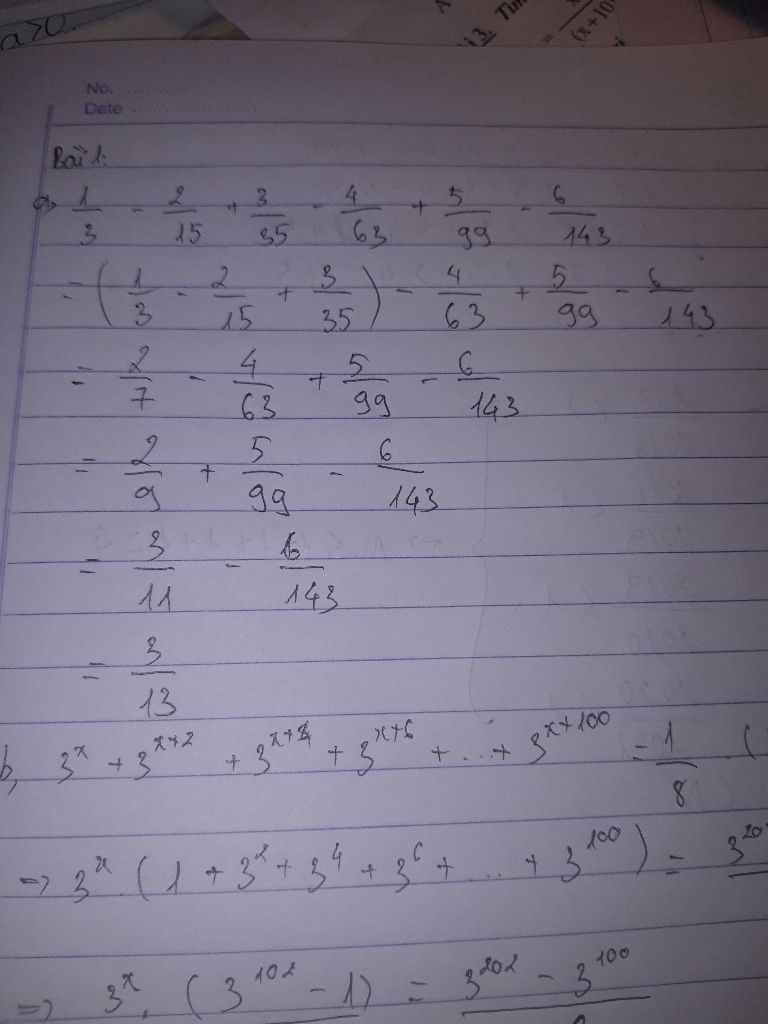 a>0.
i 3. Tìm
(x+10
No. ............
Date ....................
Bài 1:
a> 1/3 - 2/15 + 3/35 - 4/63 + 5/99 - 6/143
= (1/3 - 2/15 + 3/35) - 4/63 + 5/99 - 6/143
= 2/7 - 4/63 + 5/99 - 6/143
= 2/9 + 5/99 - 6/143
= 3/11 - 6/143
= 3/13
b, 3^x + 3^(x+2) + 3^(x+4) + 3^(x+6) + ... + 3^(x+100) = 1/8 (
=> 3^x . (1 + 3^2 + 3^4 + 3^6 + ... + 3^100) = 3^20
=> 3^x . (3^102 - 1) = 3^202 - 3^100